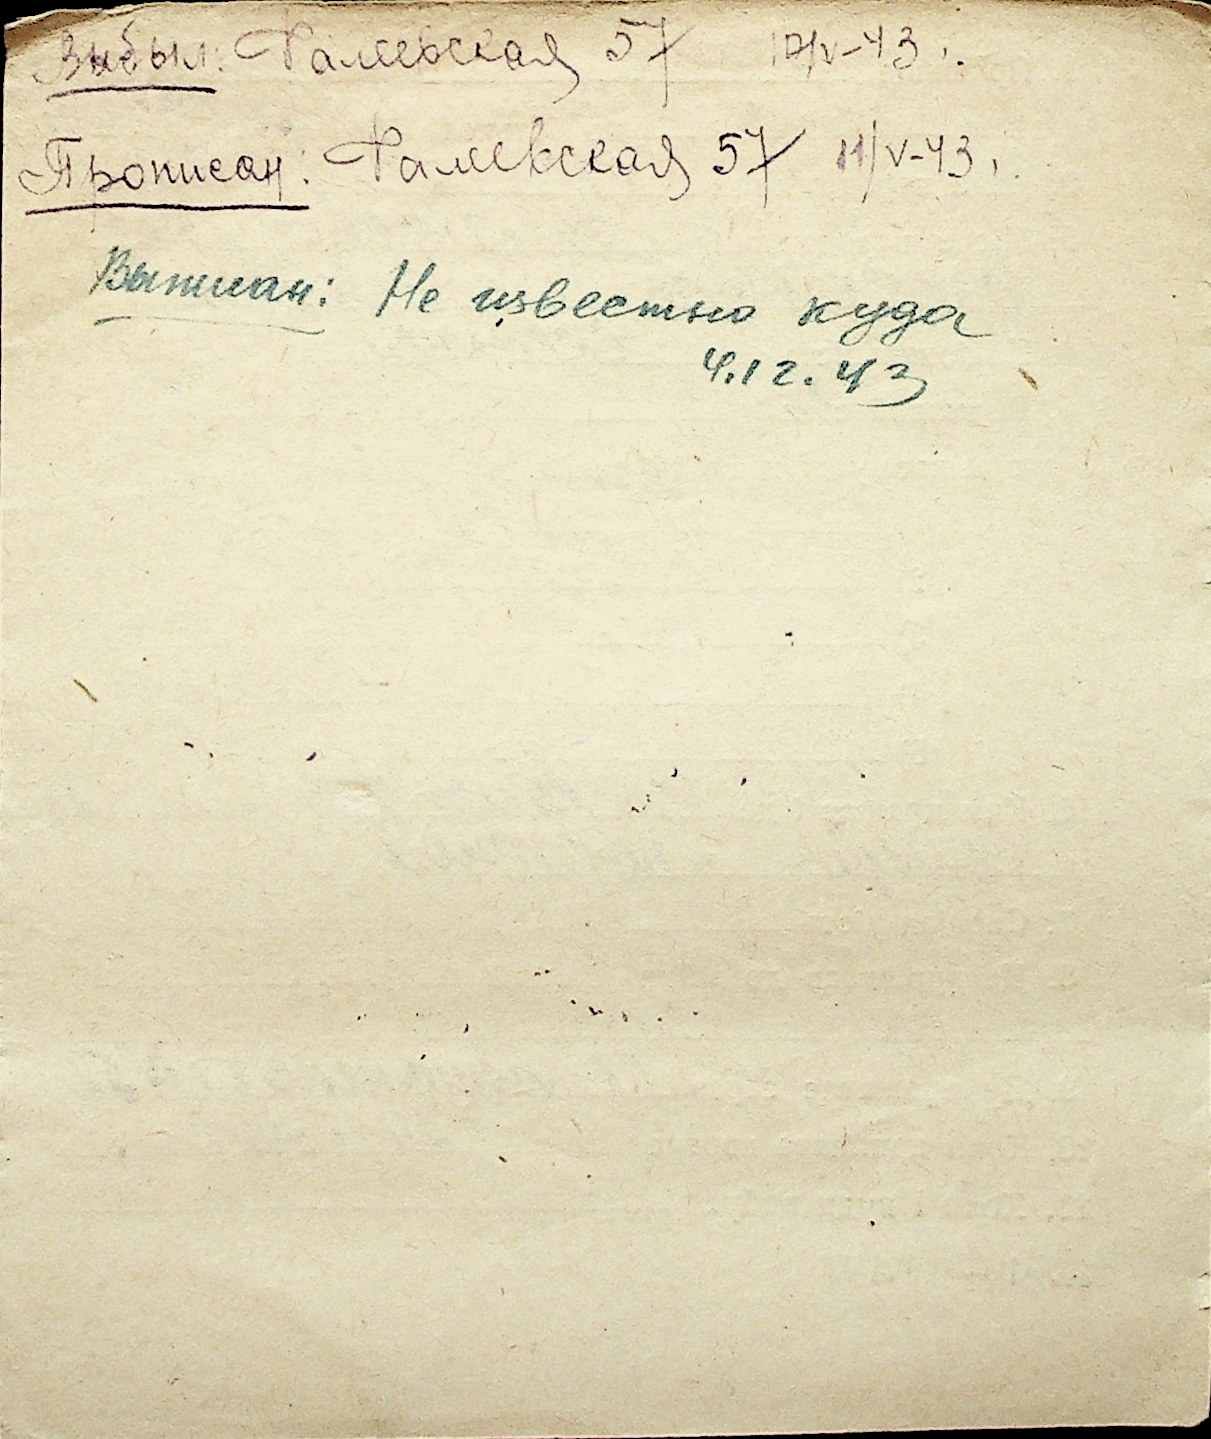 Выбыл: Фалеевская 57 10/V-43 г.
Прописан: Фалеевская 57 11/V-43 г.
Выписан: Не известно куда
4.12.43